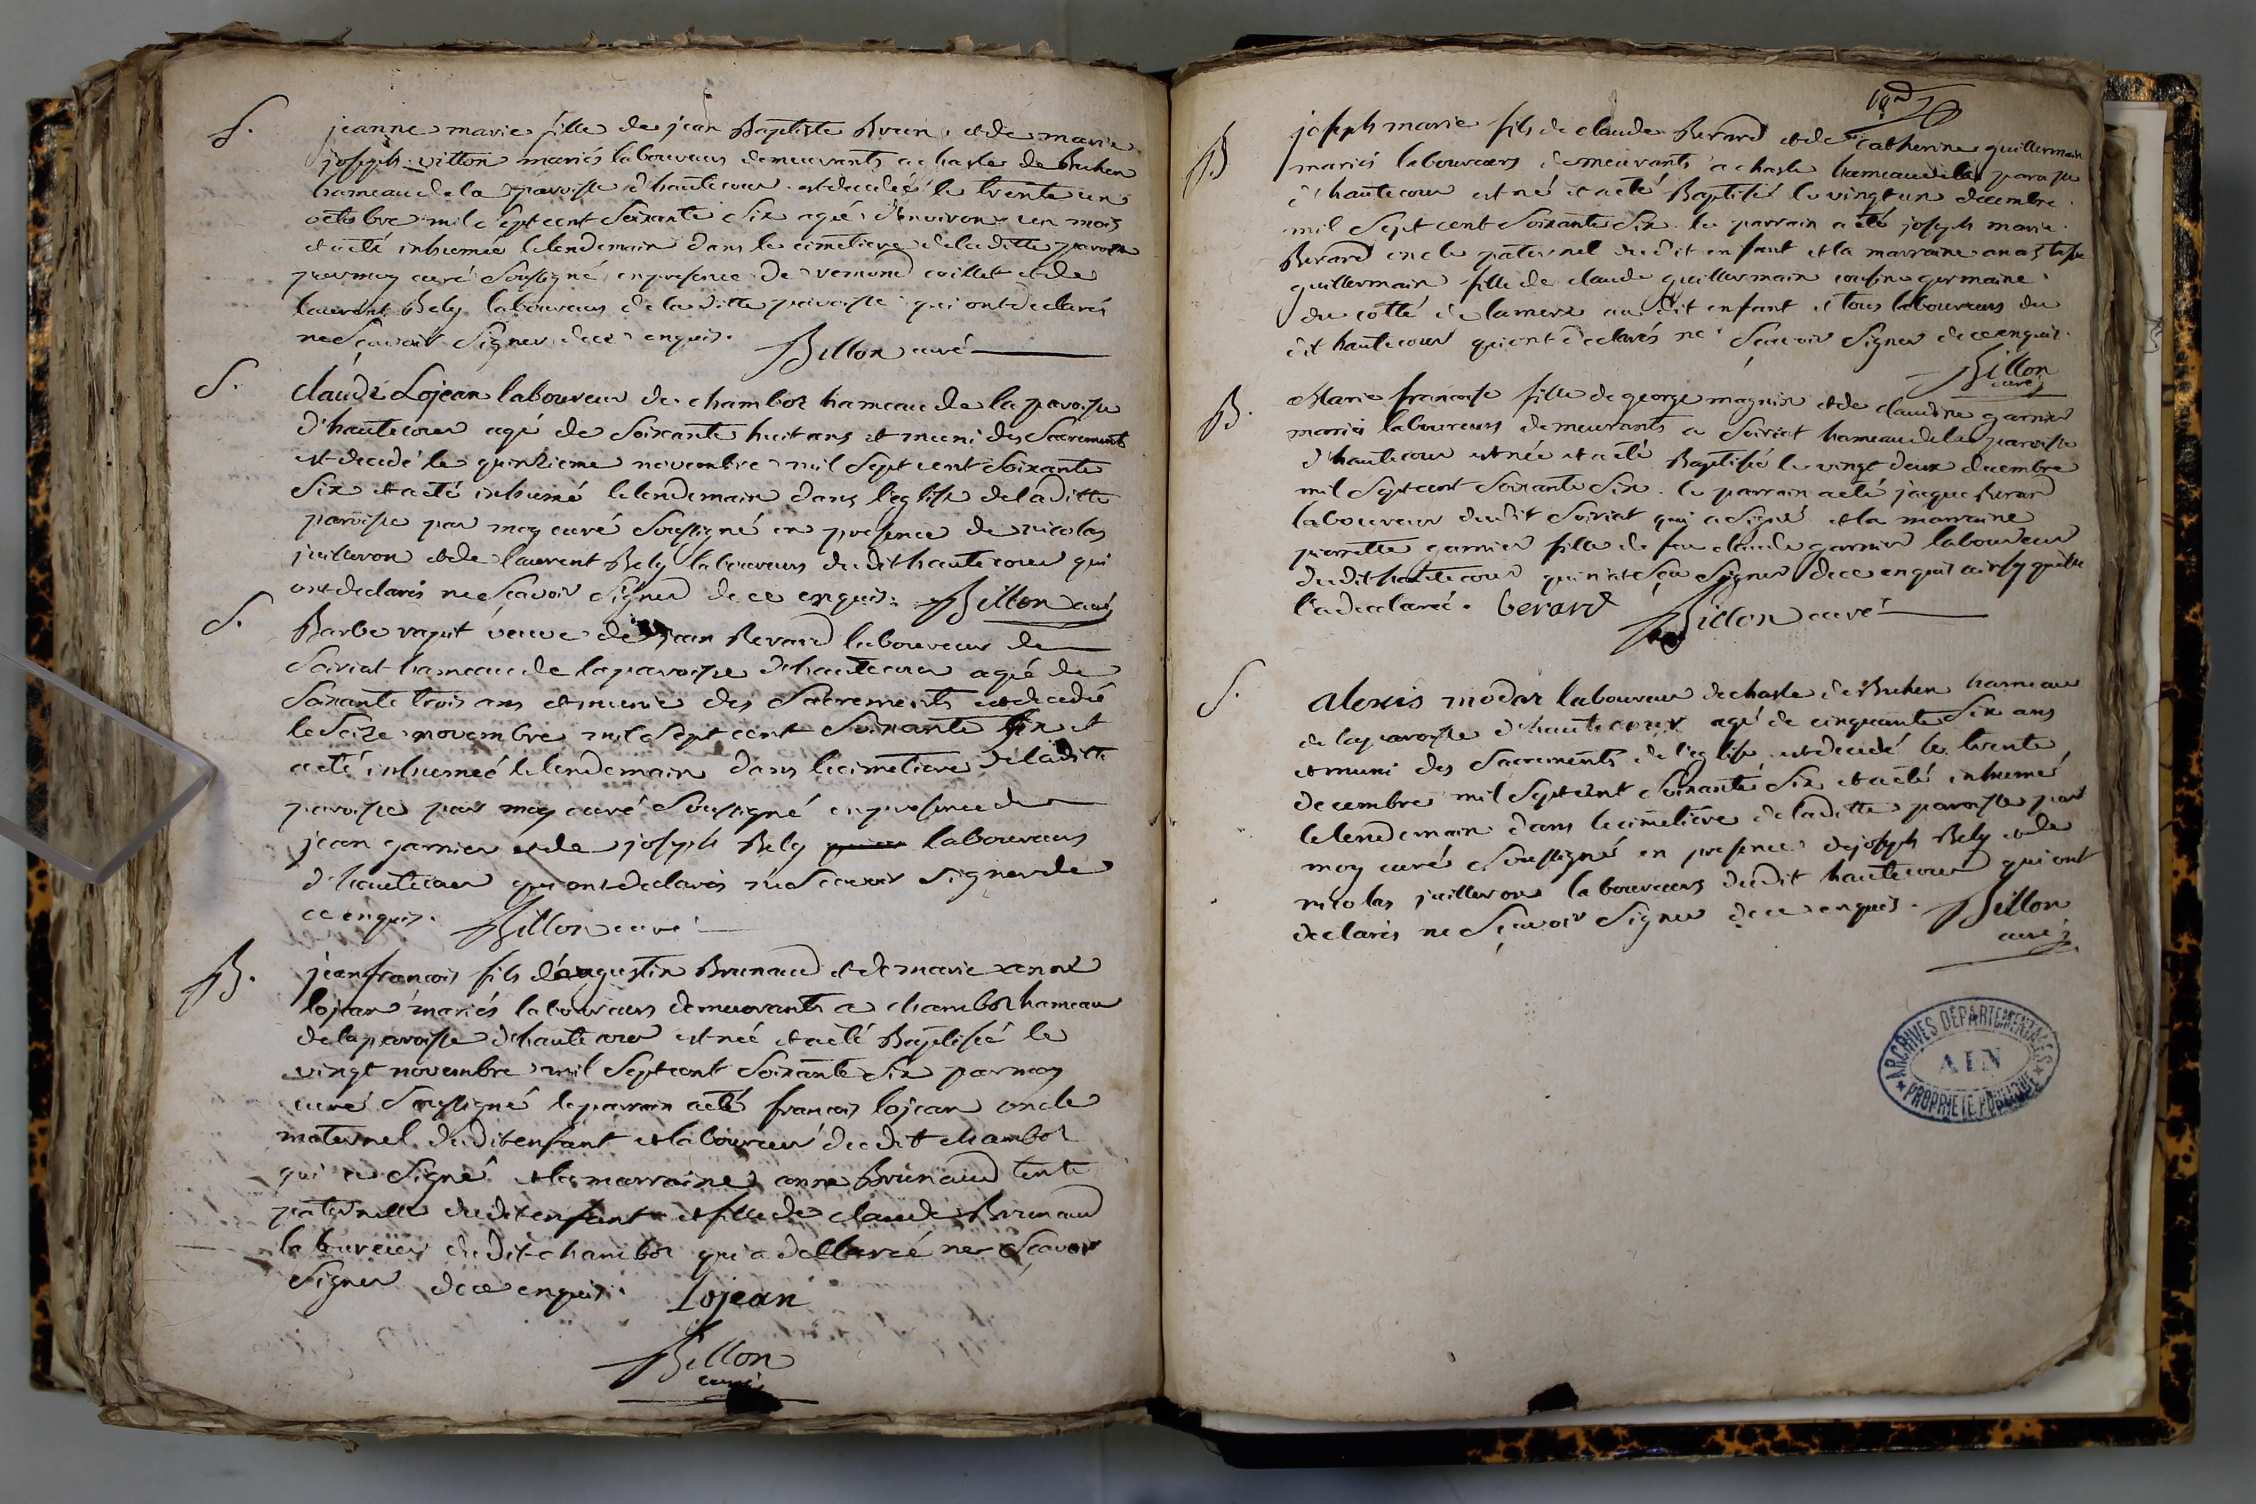 S.
jeanne marie fille de jean Baptiste Brun et de marie
joseph vitton mariés laboureurs demeurants a chasle de Buhen
hameau de la paroisse d'hautecour est decedeé le trente un
octobre mil sept cent soixante six ageé d'Environ un mois
et a eté inhumeé le lendemain dans le cimetiere de la ditte paroisse
par moy curé soussigné en presence de remond caillet et de
laurent Bely laboureurs de la ditte paroisse qui ont declarés
ne sçavoir signer de ce enquis. Billon curé
S.
claude Lojean laboureur de chambor hameau de la paroisse
d'hautecour agé de soixante huit ans et muni des sacrements
est decedé le quinzieme novembre mil sept cent soixante
six et a eté inhumé le lendemain dans l'eglise de la ditte
paroisse par moy curé soussigné en presence de nicolas
juilleron et de laurent Bely laboureurs du dit hautecour qui
ont declarés ne sçavoir signer de ce enquis. Billon curé
S.
Barbe raput veuve de jean Berard laboureur de
soiriat hameau de la paroisse d'hautecour ageé de
soixante trois ans et munie des sacrements est decedeé
le seize novembre mil sept cent soixante six et
a eté inhumeé le lendemain dans le cimetiere de la ditte
paroisse par moy curé soussigné en presence de
jean garnier et de joseph Bely laboureurs
d'hautecour qui ont declarés ne sçavoir signer de
ce enquis. Billon curé
B.
jean françois fils d'augustin Brunaud et de marie
lojean mariés laboureurs demeurants a chambor hameau
de la paroisse d'hautecour est né et a eté Baptisé le
vingt novembre mil sept cent soixante six par moy
curé soussigné le parrain a eté françois lojean oncle
maternel du dit enfant et laboureur du dit chambor
qui a signé et la marraine anne Brunaud tente
paternelle du dit enfant et fille de claude Brunaud
laboureur du dit chambor qui a declareé ne sçavoir
signer de ce enquis. Lojean
Billon
curé
B
joseph marie fils de claude Berard et de catherine guillermain
mariés laboureurs demeurants a chasle hameau de la paroisse
d'hautecour est né et a eté Baptisé le vingt un decembre
mil sept cent soixante six. le parrain a eté joseph marie
Berard oncle paternel du dit enfant et la marraine anastasie
guillermain fille de claude guillermain cousine germaine
du cotté de la mere au dit enfant et tous laboureurs du
dit hautecour qui ont declarés ne sçavoir signer de ce enquis.
Billon
curé
B.
Marie françoise fille de george magnin et de claudine garnier
mariés laboureurs demeurants a soiriat hameau de la paroisse
d'hautecour est née et a eté Baptisée le vingt deux decembre
mil sept cent soixante six. le parrain a eté jacque Berard
laboureur du dit soiriat qui a signé et la marraine
pierrette garnier fille de feu claude garnier laboureur
du dit hautecour qui n'at sçu signer de ce enquis ainsy qu'elle
l'a declareé. berard Billon curé
S.
alexis modar laboureur de chasle de Buhen hameau
de la paroisse d'hautecour agé de cinquante six ans
et muni des sacrements de l'eglise est decedé le trente
decembre mil sept cent soixante six et a eté inhumé
le lendemain dans le cimetiere de la ditte paroisse par
moy curé soussigné en presence de joseph Bely et de
nicolas juilleron laboureurs du dit hautecour qui ont
declarés ne sçavoir signer de ce enquis. Billon
curé
ARCHIVES DEPARTEMENTALES
AIN
PROPRIETE PUBLIQUE